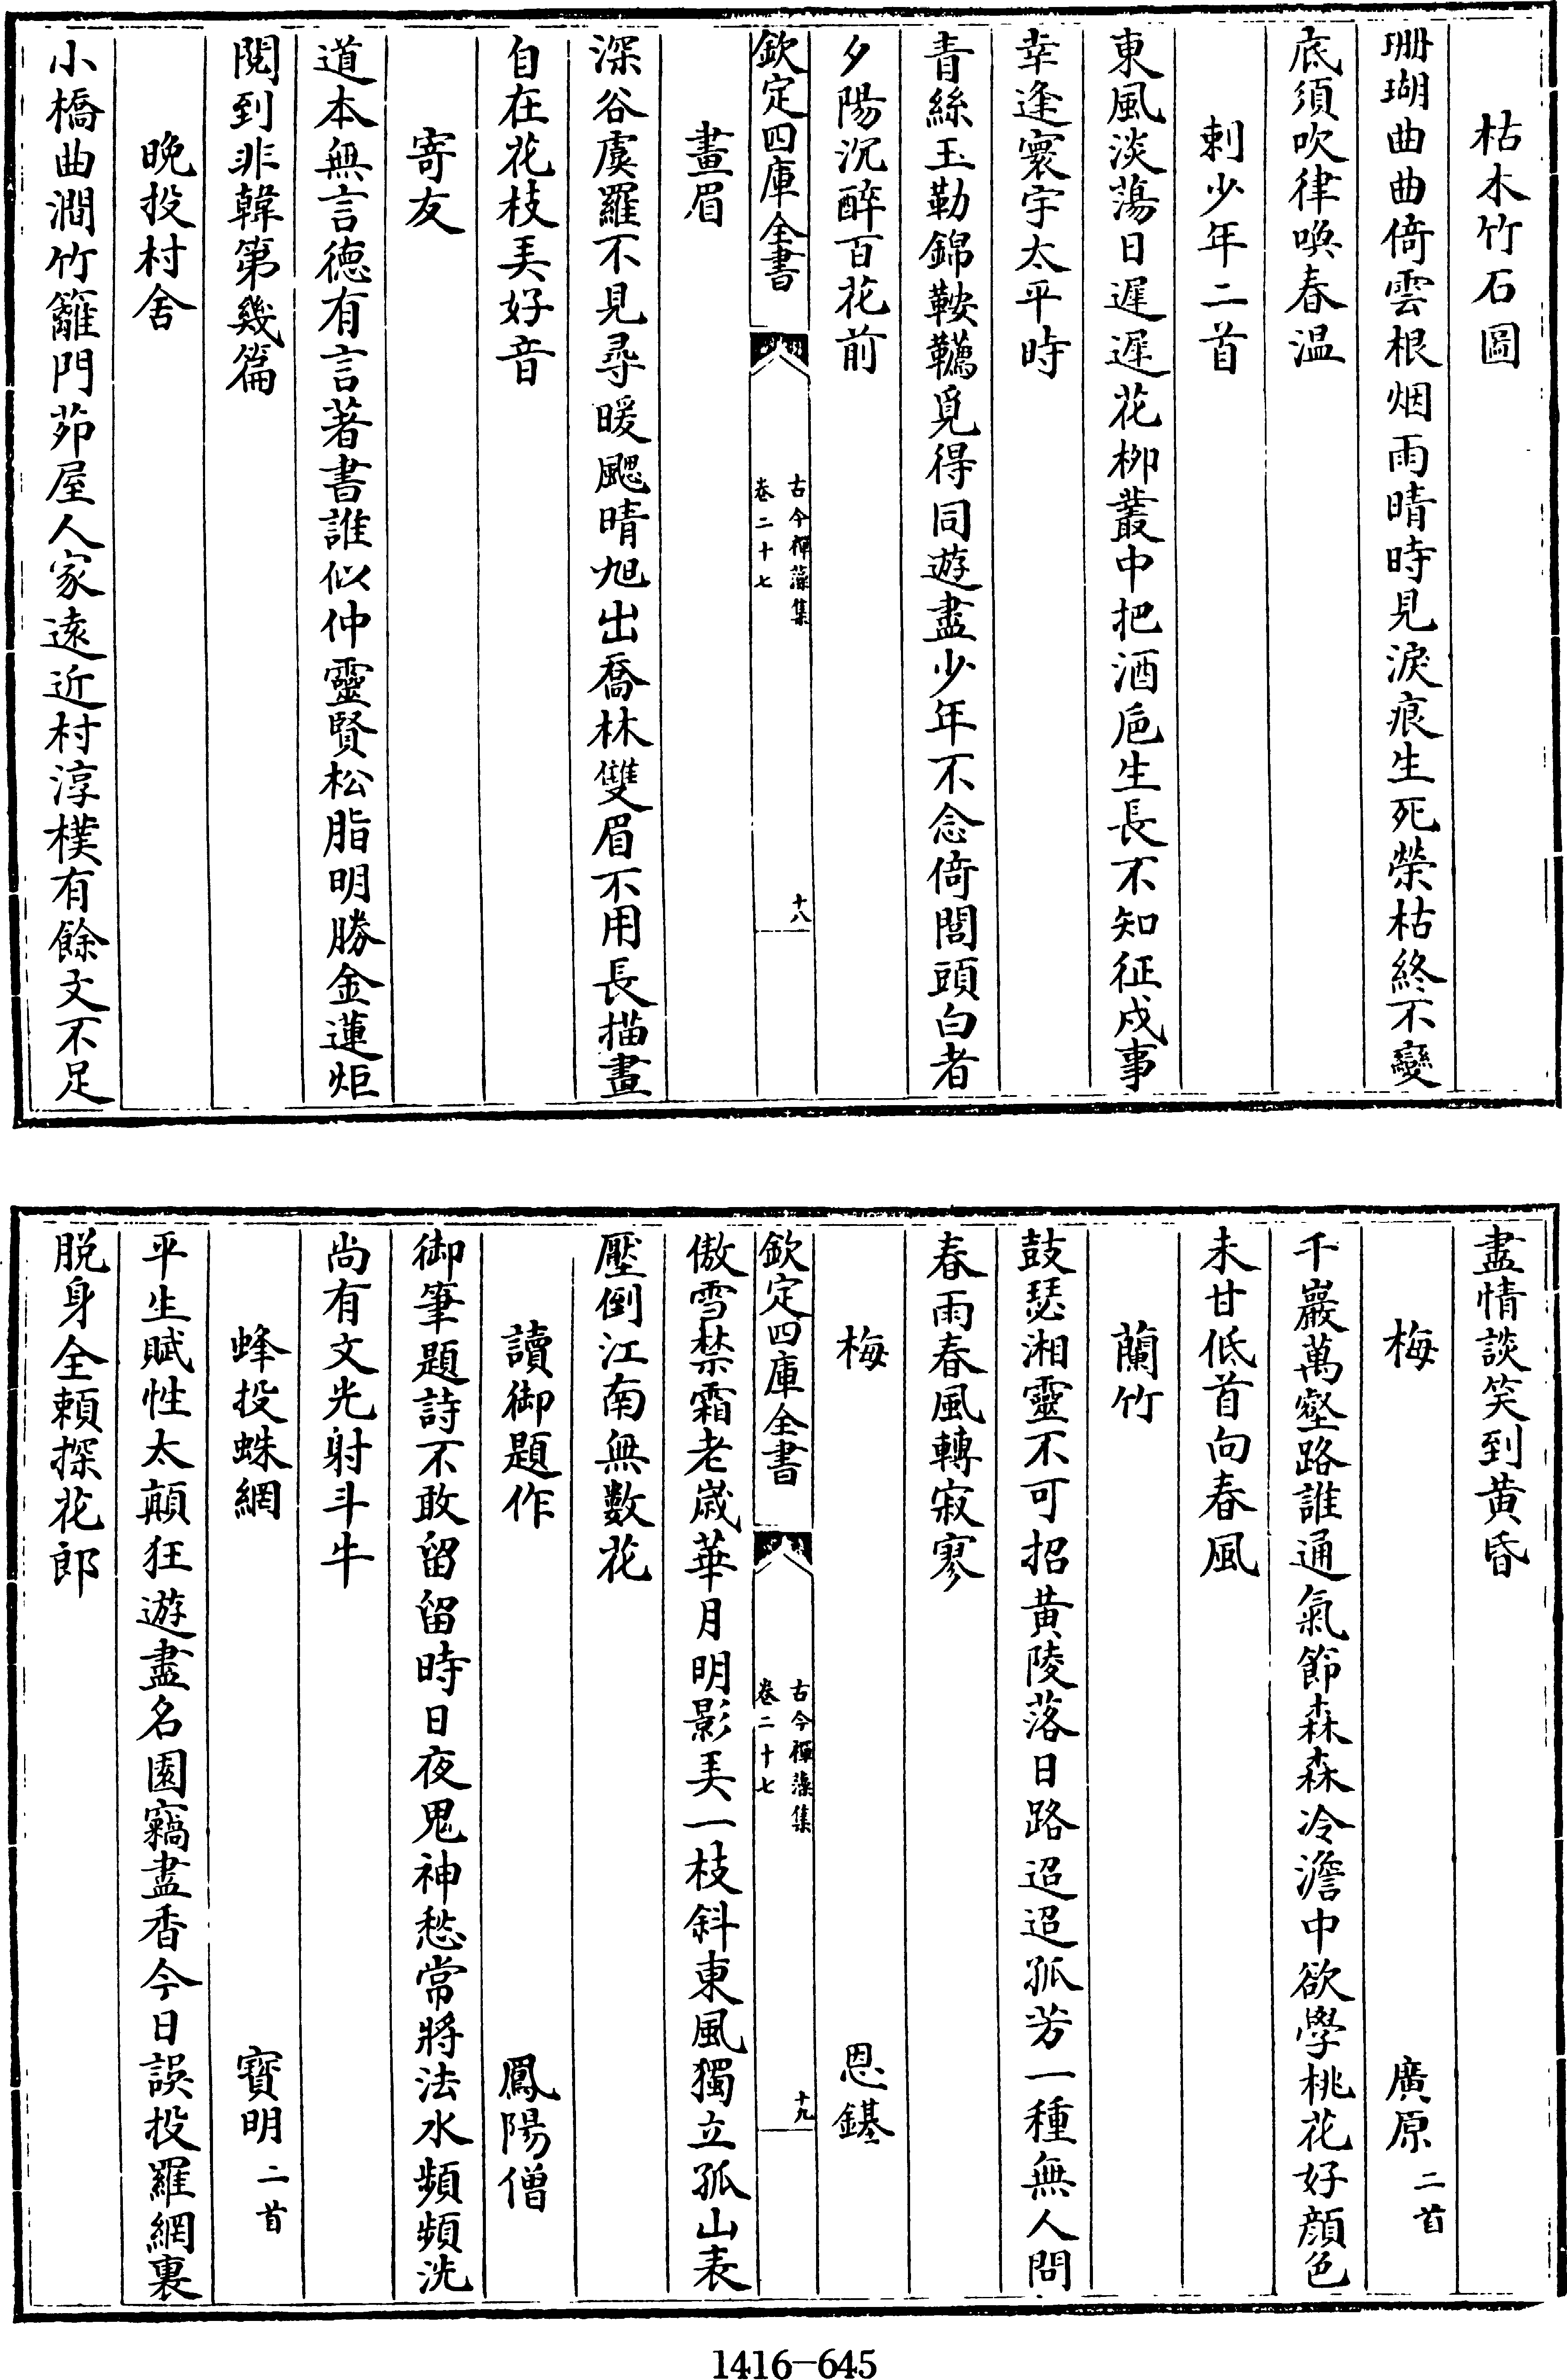 枯木竹石圖
珊瑚曲曲倚雲根烟雨晴時見淚痕生死榮枯終不變
底須吹律喚春温
刺少年二首
東風淡蕩日遲遲花柳叢中把酒巵生長不知征戍事
幸逢寰宇太平時
青絲玉勒錦鞍韉覓得同遊盡少年不念倚閭頭白者
夕陽沉醉百花前
欽定四庫全書
古今禪藻集
卷二十七
十八
畫眉
深谷虞羅不見尋暖颸晴旭出喬林雙眉不用長描畫
自在花枝美好音
寄友
道本無言德有言著書誰似仲靈賢松脂明勝金蓮炬
閱到非韓第幾篇
晩投村舍
小橋曲澗竹籬門茆屋人家遠近村淳樸有餘文不足
盡情談笑到黄昏
梅
廣原二首
千巖萬壑路誰通氣節森森冷澹中欲學桃花好顔色
未甘低首向春風
蘭竹
鼓瑟湘靈不可招黄陵落日路迢迢孤芳一種無人問
春雨春風轉寂寥
梅
恩鑑
欽定四庫全書
古今禪藻集
卷二十七
十九
傲雪禁霜老嵗華月明影美一枝斜東風獨立孤山表
壓倒江南無數花
讀御題作
鳳陽僧
御筆題詩不敢留留時日夜鬼神愁常將法水頻頻洗
尚有文光射斗牛
蜂投蛛網
寳明二首
平生賦性太顛狂遊盡名園竊盡香今日誤投羅網裏
脱身全賴探花郎
1416-645